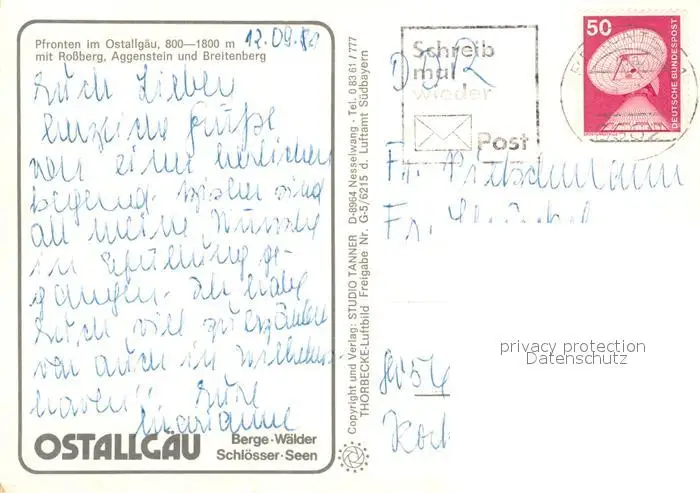 Pfronten im Ostallgäu, 800—1800 m
mit Roßberg, Aggenstein und Breitenberg
12.09.
Euch Lieben
herzliche Grüße
von einer herrlichen
Gegend. sind
all meine Wünsche
in Erfüllung ge-
gangen. Ich habe
Euch viel zu erzählen
von auch in Wilhelms-
haven!! Eure
Marianne
OSTALLGÄU
Berge·Wälder
Schlösser·Seen
Copyright und Verlag: STUDIO TANNER D-8964 Nesselwang · Tel. 0 83 61 / 777
THORBECKE-Luftbild Freigabe Nr. G-5/6215 d. Luftamt Südbayern
Schreib
mal
wieder
Post
50
DEUTSCHE BUNDESPOST
DDR
Fr.
Fr.
54
privacy protection
Datenschutz